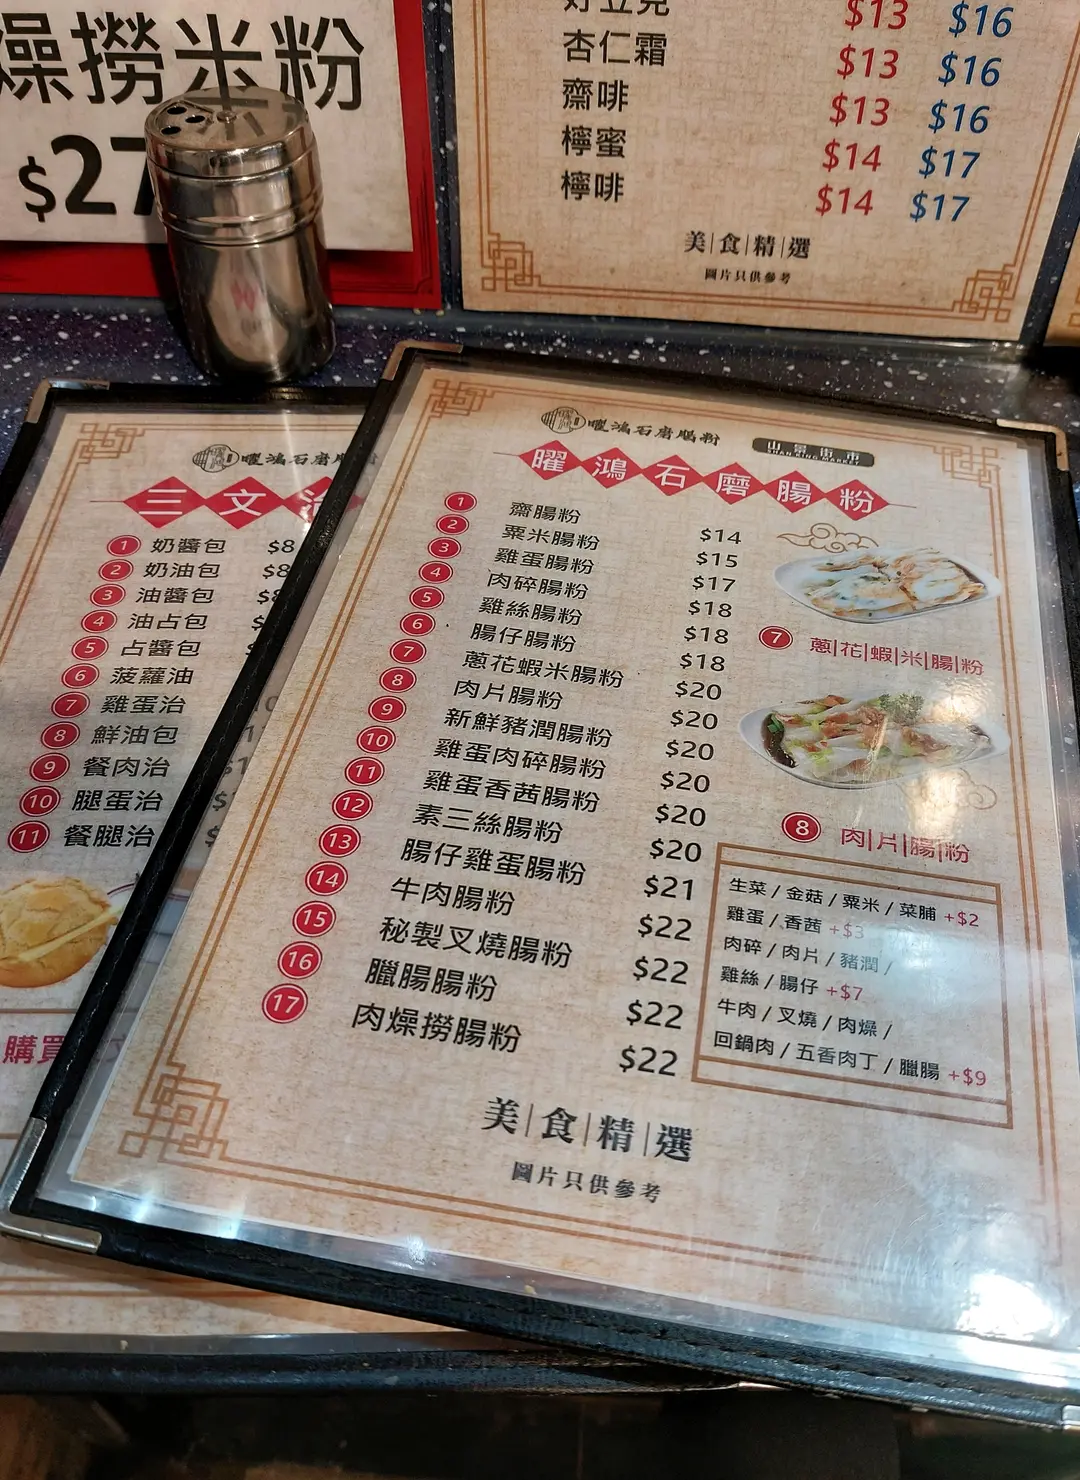 燥撈米粉
$27
好立克 $13 $16
杏仁霜 $13 $16
齋啡 $13 $16
檸蜜 $14 $17
檸啡 $14 $17
美|食|精|選
圖片只供參考
曜鴻石磨腸
三文治
1 奶醬包 $8
2 奶油包 $8
3 油醬包
4 油占包
5 占醬包
6 菠蘿油
7 雞蛋治
8 鮮油包
9 餐肉治
10 腿蛋治
11 餐腿治
購買
曜鴻石磨腸粉
山景街市
SHAN KING MARKET
曜鴻石磨腸粉
1 齋腸粉 $14
2 粟米腸粉 $15
3 雞蛋腸粉 $17
4 肉碎腸粉 $18
5 雞絲腸粉 $18
6 腸仔腸粉 $18
7 蔥花蝦米腸粉 $20
8 肉片腸粉 $20
9 新鮮豬潤腸粉 $20
10 雞蛋肉碎腸粉 $20
11 雞蛋香茜腸粉 $20
12 素三絲腸粉 $20
13 腸仔雞蛋腸粉 $21
14 牛肉腸粉 $22
15 秘製叉燒腸粉 $22
16 臘腸腸粉 $22
17 肉燥撈腸粉 $22
7 蔥|花|蝦|米|腸|粉
8 肉|片|腸|粉
生菜 / 金菇 / 粟米 / 菜脯 +$2
雞蛋 / 香茜 +$3
肉碎 / 肉片 / 豬潤 /
雞絲 / 腸仔 +$7
牛肉 / 叉燒 / 肉燥 /
回鍋肉 / 五香肉丁 / 臘腸 +$9
美|食|精|選
圖片只供參考